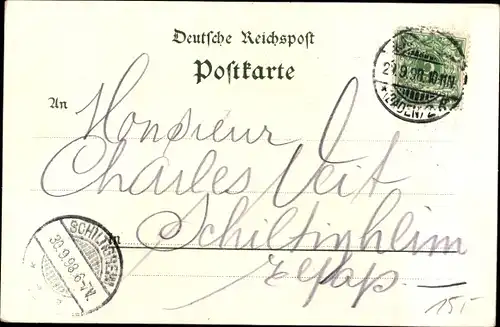 Deutsche Reichspost
Postkarte
An
Monsieur
Charles Veit
in Schiltigheim
(BADEN)
SCHILTIGHEIM
30.9.98
15,-